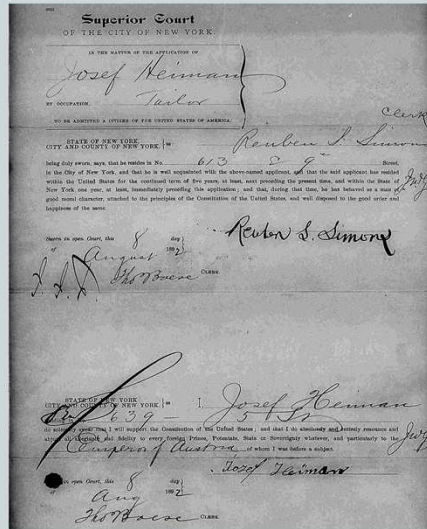 Superior Court
OF THE CITY OF NEW YORK.
IN THE MATTER OF THE APPLICATION OF
Josef Heiman
BY OCCUPATION, Tailor
TO BE ADMITTED A CITIZEN OF THE UNITED STATES OF AMERICA.
clerk
STATE OF NEW YORK, CITY AND COUNTY OF NEW YORK, ss Reuben S. Simons
being duly sworn, says, that he resides in No. 613 E 9" Street,
in the City of New York, and that he is well acquainted with the above-named applicant, and that the said applicant has
resided within the United States for the continued term of five years, at least, next preceding the present time, and within the State of
New York one year, at least, immediately preceding this application; and that, during that time, he has behaved as a man of
good moral character, attached to the principles of the Constitution of the United States, and well disposed to the good order and
happiness of the same.
Reuben S. Simons
Sworn in open Court, this 8 day
of August 1892
Tho Boese CLERK.
STATE OF NEW YORK, CITY AND COUNTY OF NEW YORK, ss I, Josef Heiman
639 - 5 St
do solemnly swear that I will support the Constitution of the United States; and that I do absolutely and entirely renounce and
abjure all allegiance and fidelity to every foreign Prince, Potentate, State or Sovereignty whatever, and particularly to the
Emperor of Austria of whom I was before a subject.
Josef Heiman
in open Court, this 8 day
Aug 1892
Tho Boese CLERK.